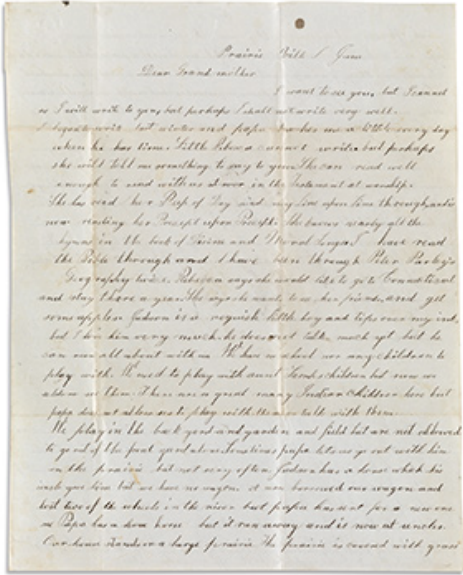 Prairie Ville 1 June
Dear Grand mother
I want to see you, but I cannot
so I will write to you, but perhaps I shall not write very well.
I begun to write last winter and papa teaches us a little every day
when he has time. Little Rebecca cannot write but perhaps
she will tell me something to say to you. She can read well
enough to read with us at noon in the Testament at worship.
She has read her Peep of Day and my Line upon Line through, and is
now reading her Precept upon Precept. She knows nearly all the
hymns in the book of Divine and Moral Songs. I have read
the Bible through and I have been through Peter Parley's
Geography twice. Rebecca says she would like to go to Connecticut
and stay there a year. She says she wants to see her friends, and get
some apples. Judson is a roguish little boy and tips over my ink,
but I love him very much. he does not talk much yet but he
can run all about with us. We have no school nor any children to
play with. We used to play with aunt children but now we
seldom see them. There are a great many Indian children here but
papa does not allow us to play with them or talk with them.
We play in the back yard and garden and field but are not allowed
to go out of the front yard alone. Sometimes papa lets us go out with him
on the prairie but not very often. Judson has a dove which his
uncle gave him but we have no wagon. A man borrowed our wagon and
lost two of the wheels in the river but papa has sent for a new one
Papa has a horse but it ran away and is now at uncles.
Our house stands on a large prairie. The prairie is covered with grass